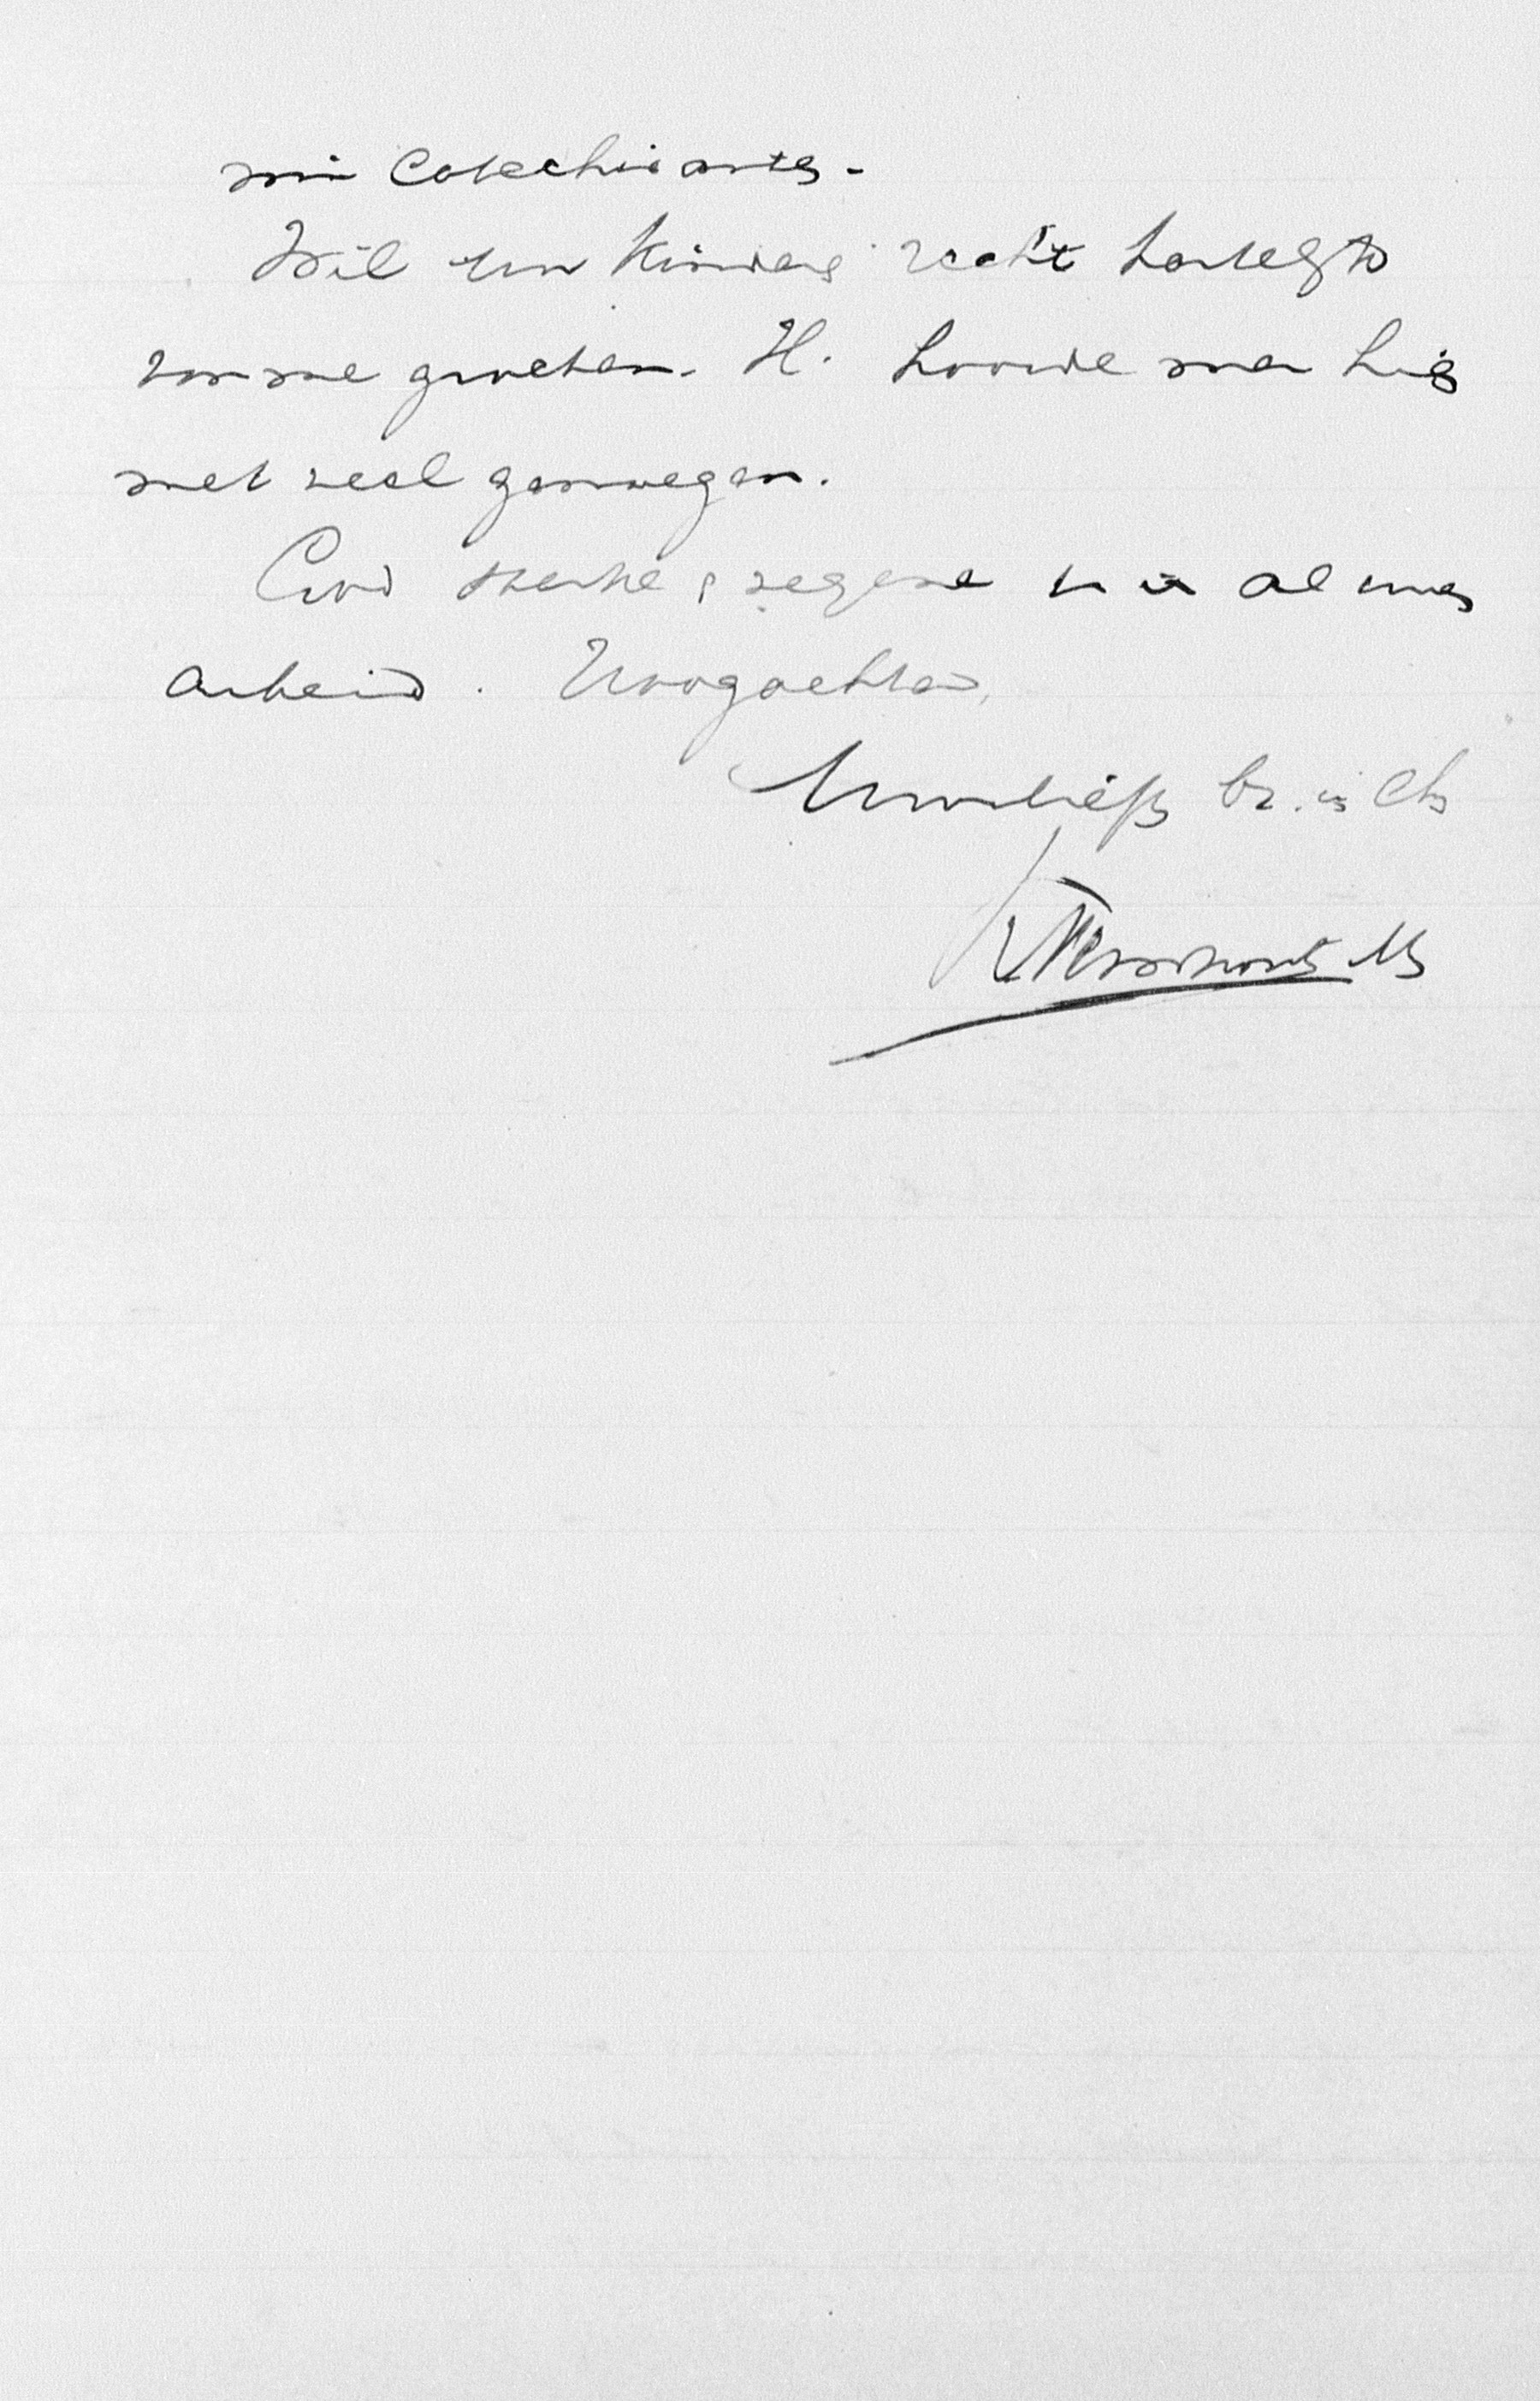 mijn Catechisante.
Wil Uw Kinders recht hartelijk
van me groeten. H. hoorde men hier
met veel genoegen.
God sterke & zegene U in al Uw
arbeid. Hoogachtend,
Uw dw br. in Chr